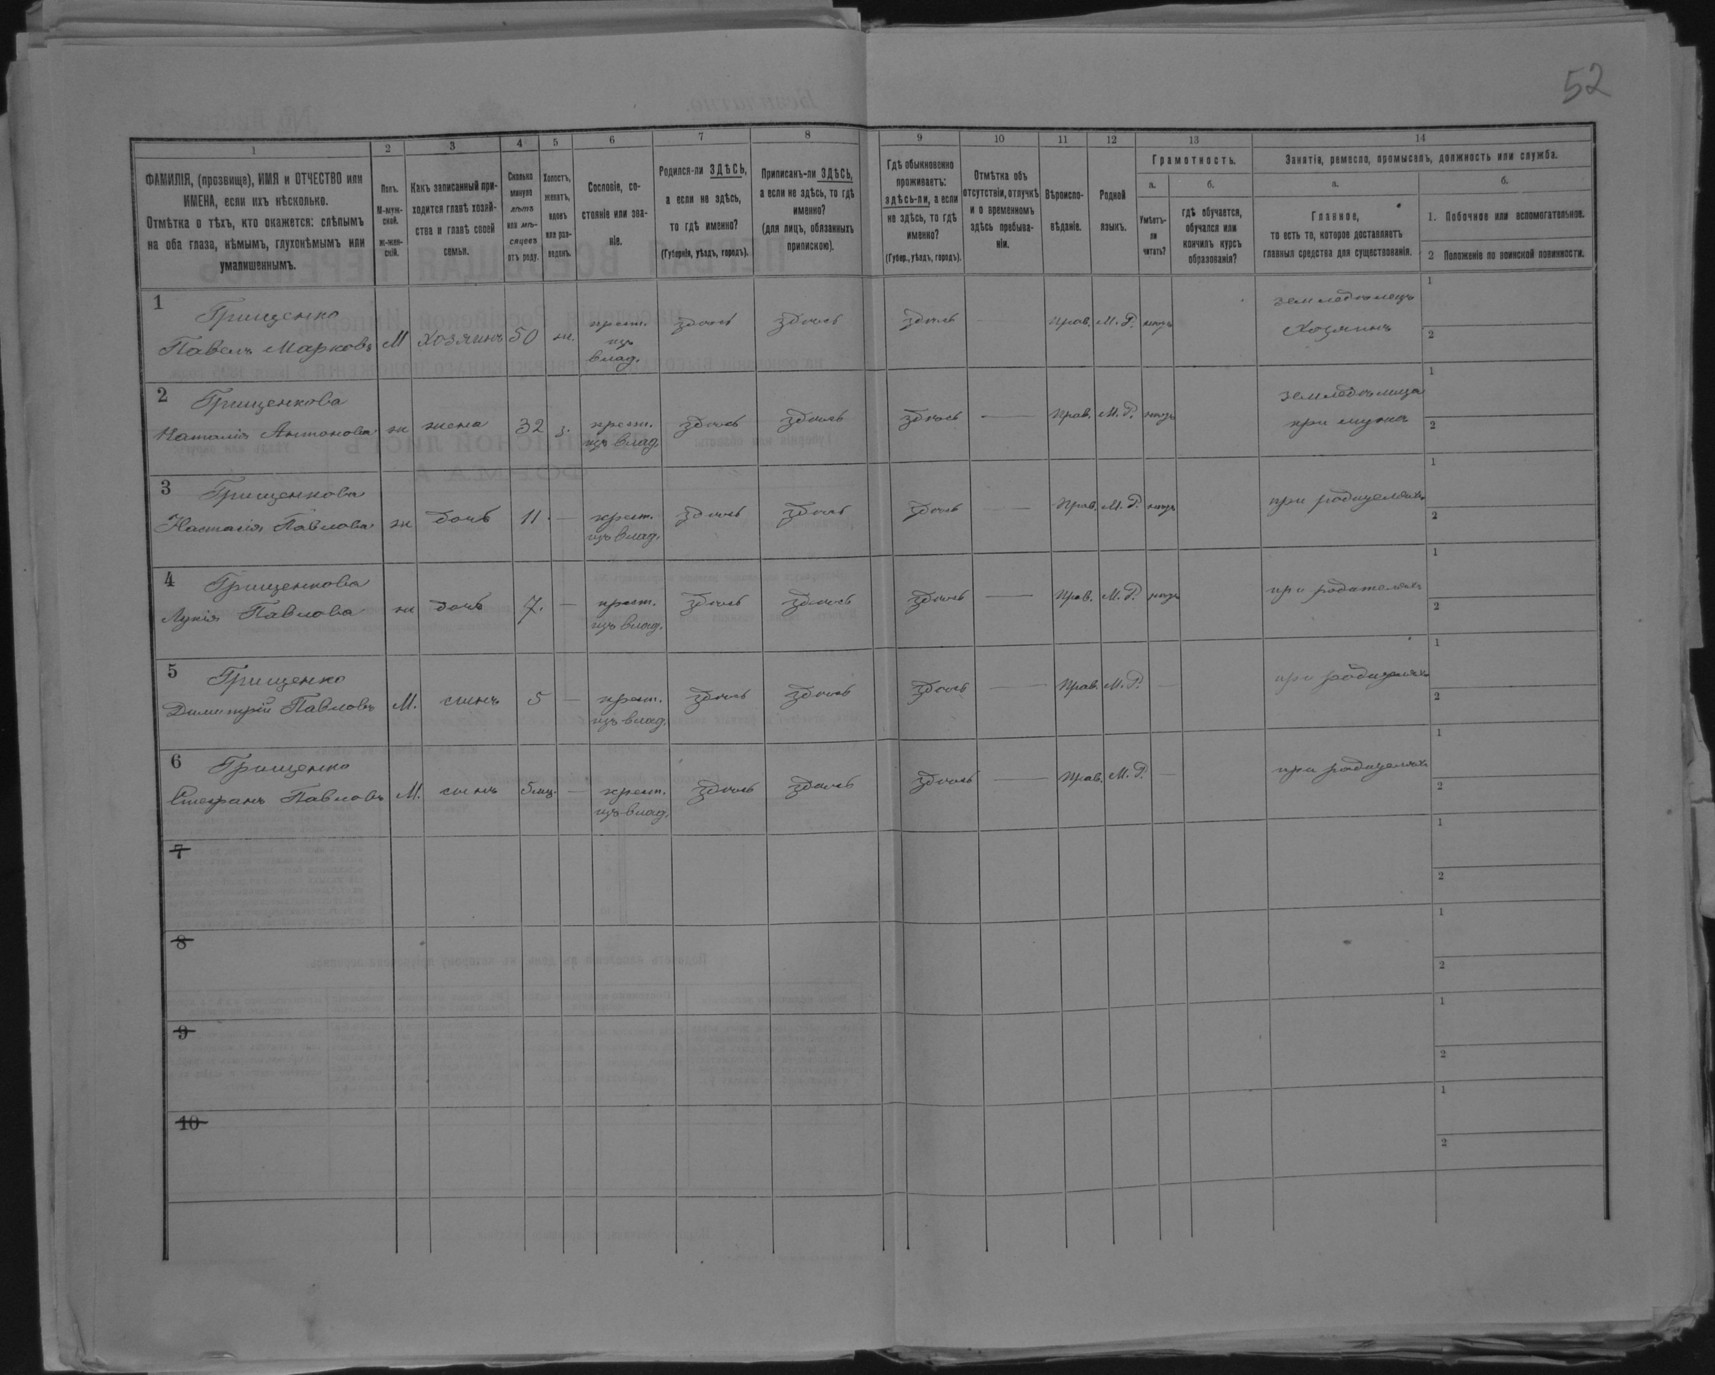 52
1 2 3 4 5 6 7 8 9 10 11 12 13 14
ФАМИЛІЯ, (прозвище), ИМЯ и ОТЧЕСТВО или
ИМЕНА, если ихъ нѣсколько.
Отмѣтка о тѣхъ, кто окажется: слѣпымъ
на оба глаза, нѣмымъ, глухонѣмымъ или
умалишеннымъ.
Полъ.
М-муж-
ской.
Ж-жен-
скій.
Какъ записанный при-
ходится главѣ хозяй-
ства и главѣ своей
семьи.
Сколько
минуло
лѣтъ
или мѣ-
сяцевъ
отъ роду.
Холостъ,
женатъ,
вдовъ
или раз-
веденъ.
Сословіе, со-
стояніе или зва-
ніе.
Родился-ли ЗДѢСЬ,
а если не здѣсь,
то гдѣ именно?
(Губернія, уѣздъ, городъ).
Приписанъ-ли ЗДѢСЬ,
а если не здѣсь, то гдѣ
именно?
(для лицъ, обязанныхъ
припискою).
Гдѣ обыкновенно
проживаетъ:
здѣсь-ли, а если
не здѣсь, то гдѣ
именно?
(Губер., уѣздъ, городъ).
Отмѣтка объ
отсутствіи, отлучкѣ
и о временномъ
здѣсь пребыва-
ніи.
Вѣроиспо-
вѣданіе.
Родной
языкъ.
Грамотность.
а.
Умѣетъ-
ли
читать?
б.
гдѣ обучается,
обучался или
кончилъ курсъ
образованія?
Занятіе, ремесло, промыселъ, должность или служба.
а.
Главное,
то есть то, которое доставляетъ
главныя средства для существованія.
б.
1. Побочное или вспомогательное.
2 Положеніе по воинской повинности.
1 Грищенко
Павелъ Марковъ М Хозяинъ 50 ж. крест. изъ влад. здѣсь здѣсь здѣсь — Прав. М. Р. нѣтъ земледѣлецъ Хозяинъ 1 2
2 Грищенкова
Наталія Антонова ж жена 32 з. крест. изъ влад. здѣсь здѣсь здѣсь — Прав. М. Р. нѣтъ земледѣлица при мужѣ 1 2
3 Грищенкова
Настасія Павлова ж дочь 11. — крест. изъ влад. здѣсь здѣсь здѣсь — Прав. М. Р. нѣтъ при родителяхъ 1 2
4 Грищенкова
Лукія Павлова ж дочь 7. — крест. изъ влад. здѣсь здѣсь здѣсь — Прав. М. Р. нѣтъ при родителяхъ 1 2
5 Грищенко
Димитрій Павловъ М. сынъ 5 — крест. изъ влад. здѣсь здѣсь здѣсь — Прав. М. Р. — при родителяхъ 1 2
6 Грищенко
Стефанъ Павловъ М. сынъ 5 мц. — крест. изъ влад. здѣсь здѣсь здѣсь — Прав. М. Р. — при родителяхъ 1 2
7 1 2
8 1 2
9 1 2
10 1 2